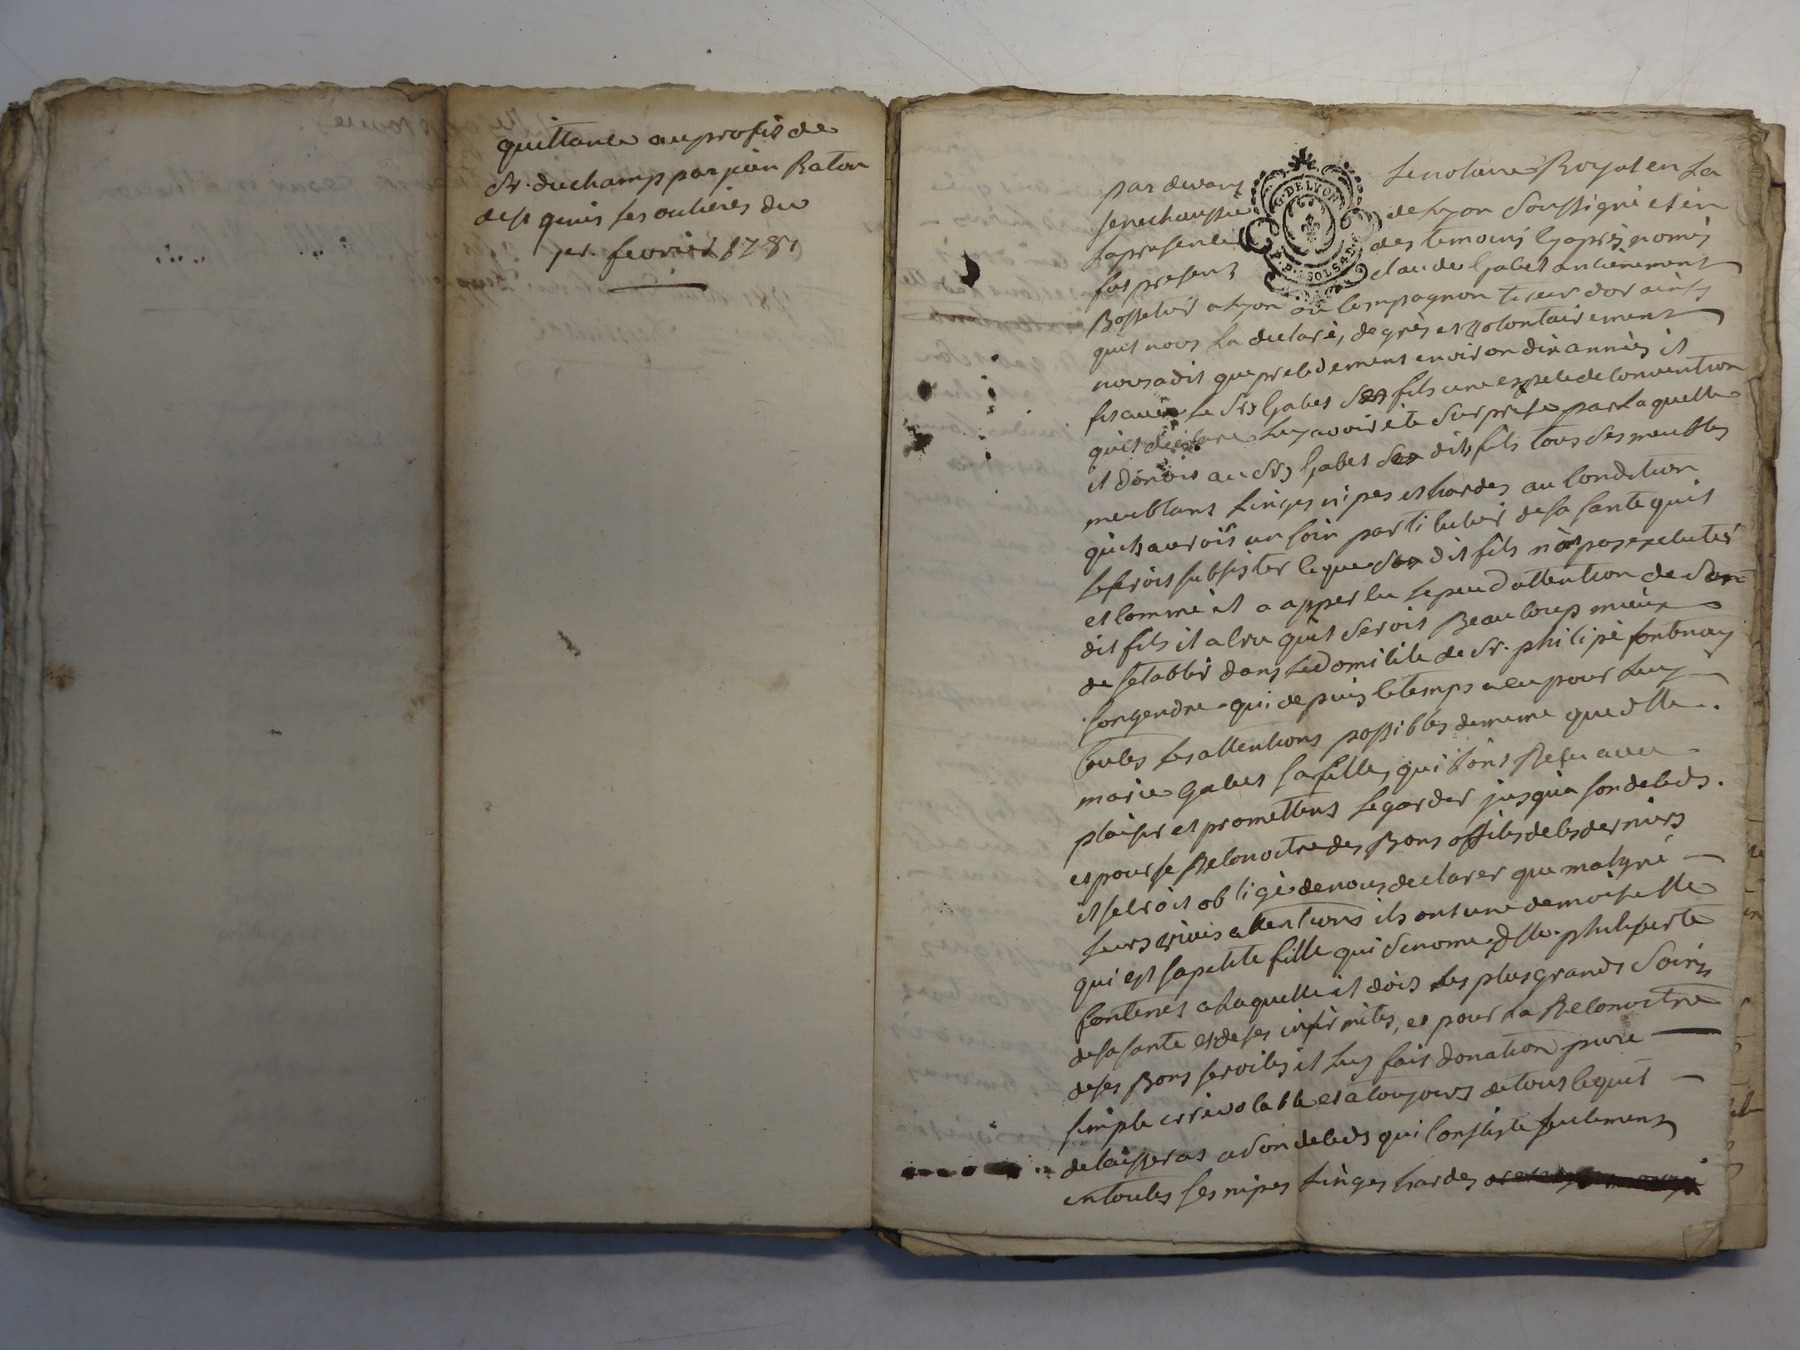 quittance au profis de
Sr. duchamp par jean Raton
de st genis les oulieres du
1er. fevrier 1781
par devant Le notaire Royal en La
senechaussée de Lyon soussigné et en
La presence des temoins cy après només
G. DE LYON
fut present claude Gabet anciennement
Bosselur a Lyon ou compagnon tireur dor ainsy
quil nous La declaré, de grés et volontairement
nous a dit que precedement environ dix années il
fit avec Le Sr Gabet son fils une espece de convention
quil declare Luy avoir été surprise par Laquelle
il donoit au Sr Gabet son dit fils tous ses meubles
meublants Linges nipes et hardes au condition
quil auroit un soin particulier de sa santé quil
Le feroit subsister ce que son dit fils n'a pas executés
et comme il a apperçu Le peu d'attention de son
dit fils il a cru quil seroit Beaucoup mieux
de setablir dans Le Domicile de Sr. philipe fontenay
son gendre qui depuis ce temps a eu pour Luy
toutes Les attentions possibles de meme que dlle.
marie Gabet sa fille, qui L'ont Reçu avec
plaisir et promettent Le garder jusqu'a son deceds.
et pour se Reconoitre des Bons offices de ces derniers
il se croit obligé de nous declarer que malgré
Leurs attentions ils ont une demoiselle
qui est sa petite fille qui se nome dlle. philiperte
fontenet a Laquelle il dois Les plus grands soins
de sa santé et de ses infirmités, et pour La Reconoitre
de ses Bons services il Luy fait donation pure
simple irrevocable et a toujours de tout ce quil
delaisseras a son deceds qui consiste seulement
en toutes ses nipes Linges hardes